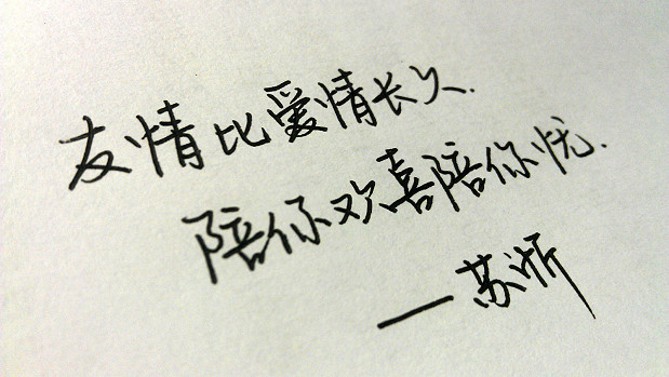 友情比爱情长久.
陪你欢喜陪你忧.
—苏浙